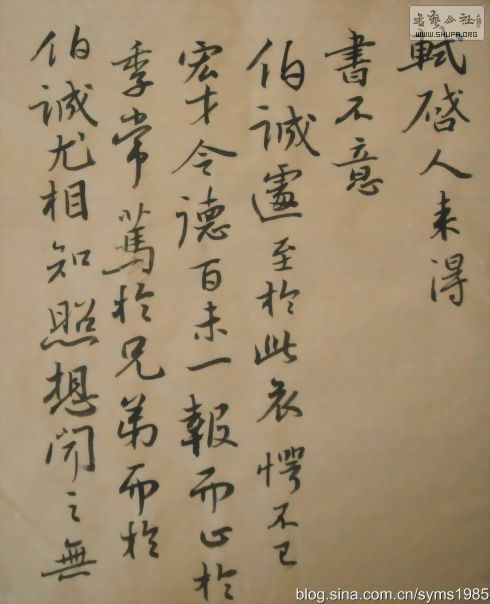 軾啓人来得
書不意
伯誠遽至於此哀愕不已
宏才令德百未一報而止於
季常篤於兄弟而於
伯誠尤相知照想聞之無
書藝公社
WWW.SHUFA.ORG
blog.sina.com.cn/syms1985